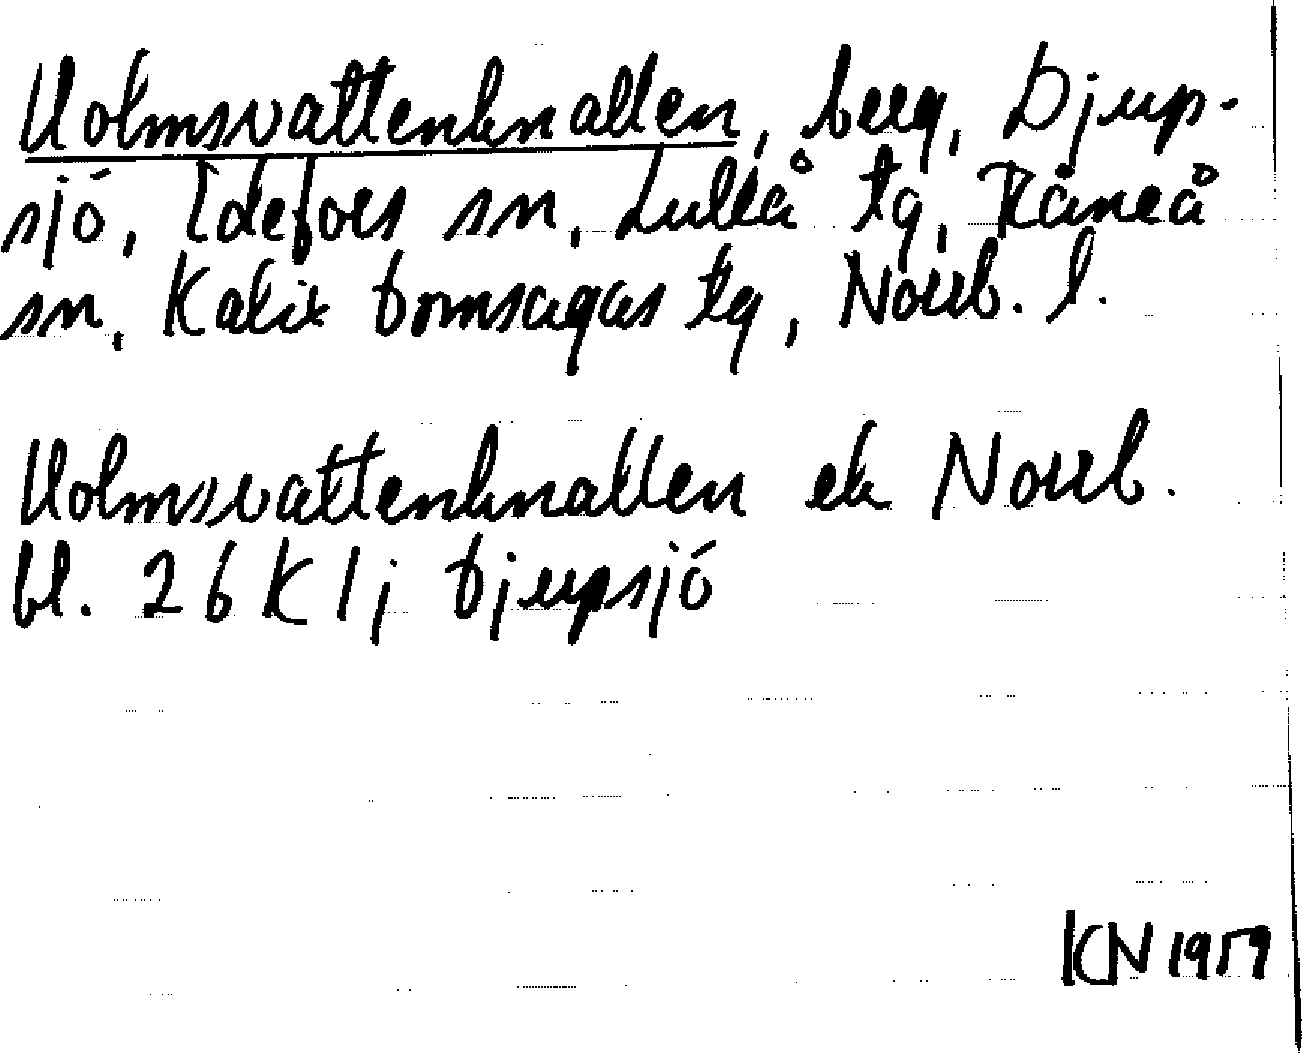 Holmsvattenknallen, berg, Djup-
sjö, Edefors sn, Luleå tg, Råneå
sn, Kalix domsagas tg, Norrb. l.
Holmsvattenknallen ek Norrb.
bl. 26K1j Djupsjö
KN